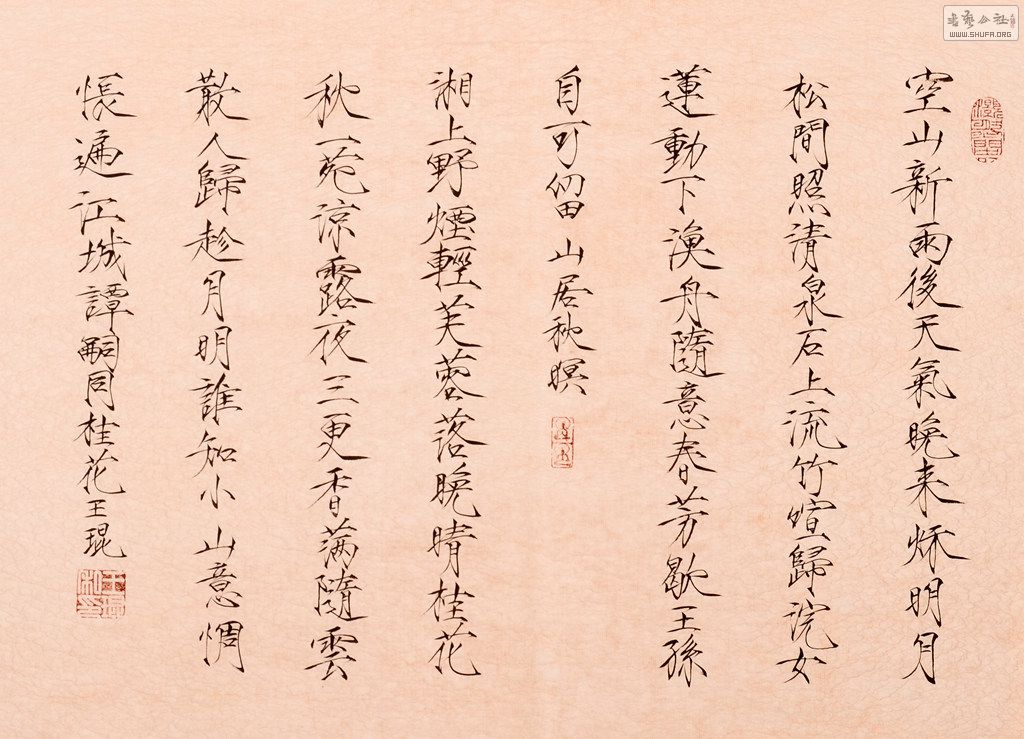 空山新雨後天氣晚来秌明月
松間照清泉石上流竹喧歸浣女
蓮動下漁舟隨意春芳歇王孫
自可留 山居秋暝
湘上野煙輕芙蓉落晚晴桂花
秋一苑涼露夜三更香滿隨雲
散人歸趁月明誰知小山意惆
悵遍江城譚嗣同桂花王琨
書藝公社
WWW.SHUFA.ORG